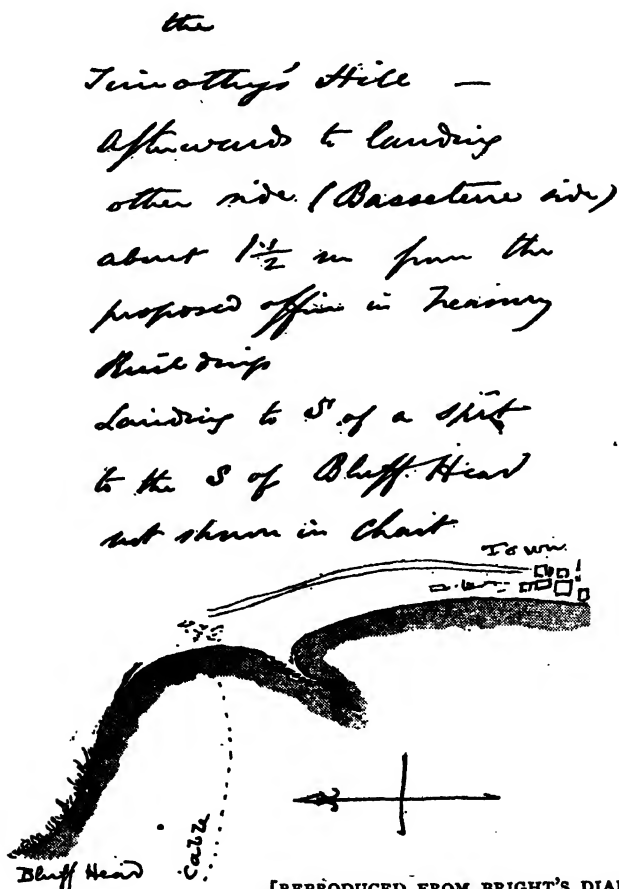 the
Timothy's Hill —
Afterwards to landing
other side (Basseterre side)
about 1½ m from the
proposed office in Treasury
Buildings
Landing to S of a spit
to the S of Bluff Head
not shown in Chart
Town
Bluff Head
Cable
[REPRODUCED FROM BRIGHT'S DIA